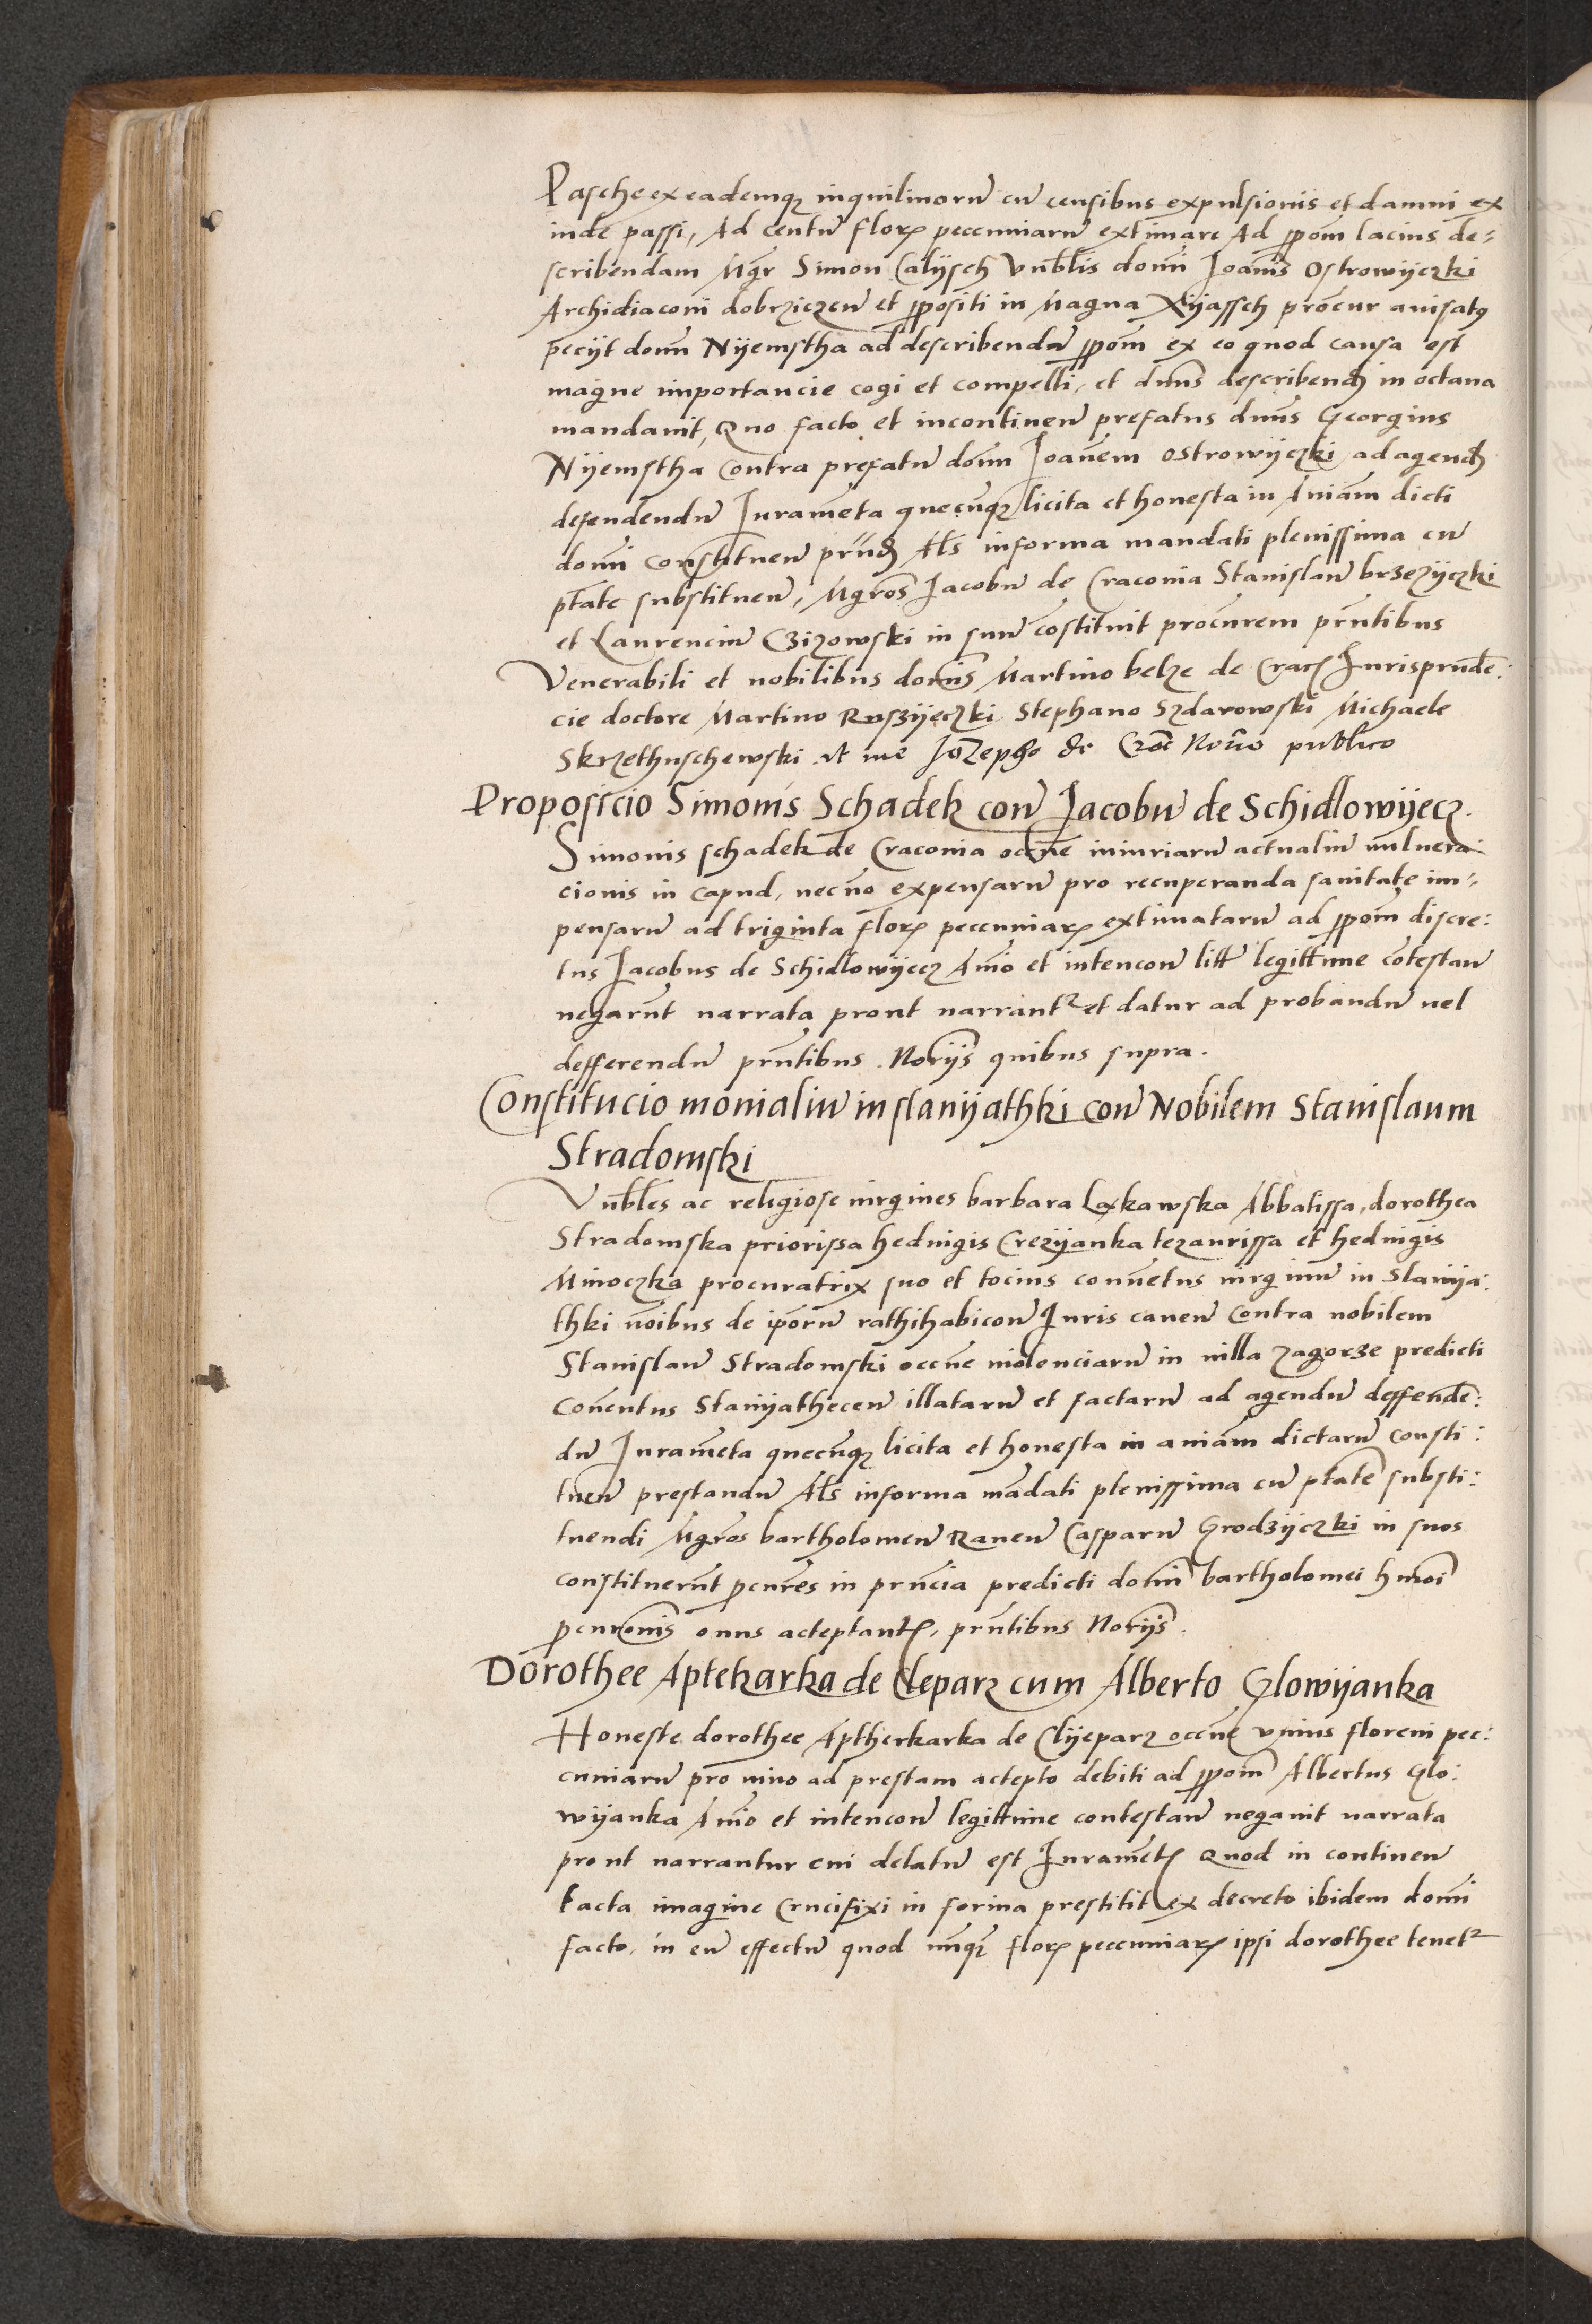 Pasche ex eademq₃ inquilinorū cū censibus expulsionis et damni ex
inde passi, Ad centū florꝭ pecuniarū extimare Ad ꝓpom̄ lacius de⸗
scribendam Mg̃r Simon Calijsch Vnb̃lis dom̃i Joan̄is Ostrowijczki
Archidiaconi dobrziczeñ et ꝓpositi in Magna Xijassch procur̃ auisatꝰ
pecijt dom̃ Nijemstha ad describendū ꝓpom̄ ex eo quod causa est
magne importancie cogi et compelli, et dn̄us describend̄ in octaua
mandauit, Quo facto et incontineñ prefatus dn̄us Georgius
Nijemstha Contra prefatū dom̃ Joan̄em Ostrowijczki ad agend̄
defendendū Jurameta quecūq₃ licita et honesta in Aniām dicti
dom̃i Constitueñ prn̄d̄ Al̃s informa mandati plenissima cū
pt̃ate substitueñ, Mgr̃os Jacobū de Craconia Stanislaū brzezijczki
et Laurenciū Czizowski in suū cōstituit procurem̄ prn̄tibus
Venerabili et nobilibus dom̃is Martino belze de Cracꝭ Jurisprudē:
cie doctore Martino Ruszijeczki Stephano Szdarowski Michaele
Skrzethuschewski et me Jozepho de Croc̃ Nor̃io publico
Proposicio Simonis Schadek con̄ Jacobū de Schidlowijecz.
Simonis schadek de Craconia occn̄e iniuriarū actualiū uulnera⸗
cionis in capud, necn̄o expensarū pro recuperanda sanitate im⸗
pensarū ad triginta florꝭ pecuniarꝭ extimatarū ad ꝓpom̄ discre:
tus Jacobus de Schidlowijecz Anīo et intencon̄ litt̃ legittime cōtestan̄
negarn̄t narrata prout narrantᷣ et datur ad probandū uel
defferendū prn̄tibus. Norijs quibus supra.
Constitucio monialiū in stanijathki con̄ Nobilem Stanislaum
Stradomski
Vnb̃les ac religiose uirgines barbara Lakawska Abbatissa, dorothea
Stradomska priorissa heduigis Crezijanka tezaurissa et heduigis
Minoczka procuratrix suo et tocius conūetus uirginū in Stanija:
thki noībus de ip̄orū rathihabicon̄ Juris caueñ Contra nobilem
Stanislaū Stradomski occn̄e uiolenciarū in uilla zagorze predicti
Conūentus Stanijatheceñ illatarū et factarū ad agendū deffendē:
dū Jurameta quecūq₃ licita et honesta in aniām dictarū consti:
tueñ prestandū Al̃s informa mādati plenissima cū pt̃ate substi:
tuendi Mgr̃os bartholomeū Raneū Casparū Grodzijczki in suos
constituern̄t ꝓcur̃es in prn̄cia predicti dom̃i bartholomei hm̄oi
ꝓcuronis onus acteptantꝭ, prn̄tibus Norijs.
Dorothee Aptekarka de Clepar₃ cum Alberto Glowijanka
Honeste dorothee Aptherkarka de Clijeparz occn̄e vnius floreni pec:
cuniarū pro uino ad prestam actepto debiti ad ꝓpom̄ Albertus Glo:
wijanka Anīo et intencon̄ legittime contestan̄ negauit narrata
prout narrantur cui delatū est Juramētꝭ Quod in contineñ
tacta imagine Crucifixi in forma prestitit ex decreto ibidem dom̃i
facto, in eū effectū quod nūqꝫ florꝭ pecuniarꝭ ipsi dorothee tenetᷣ